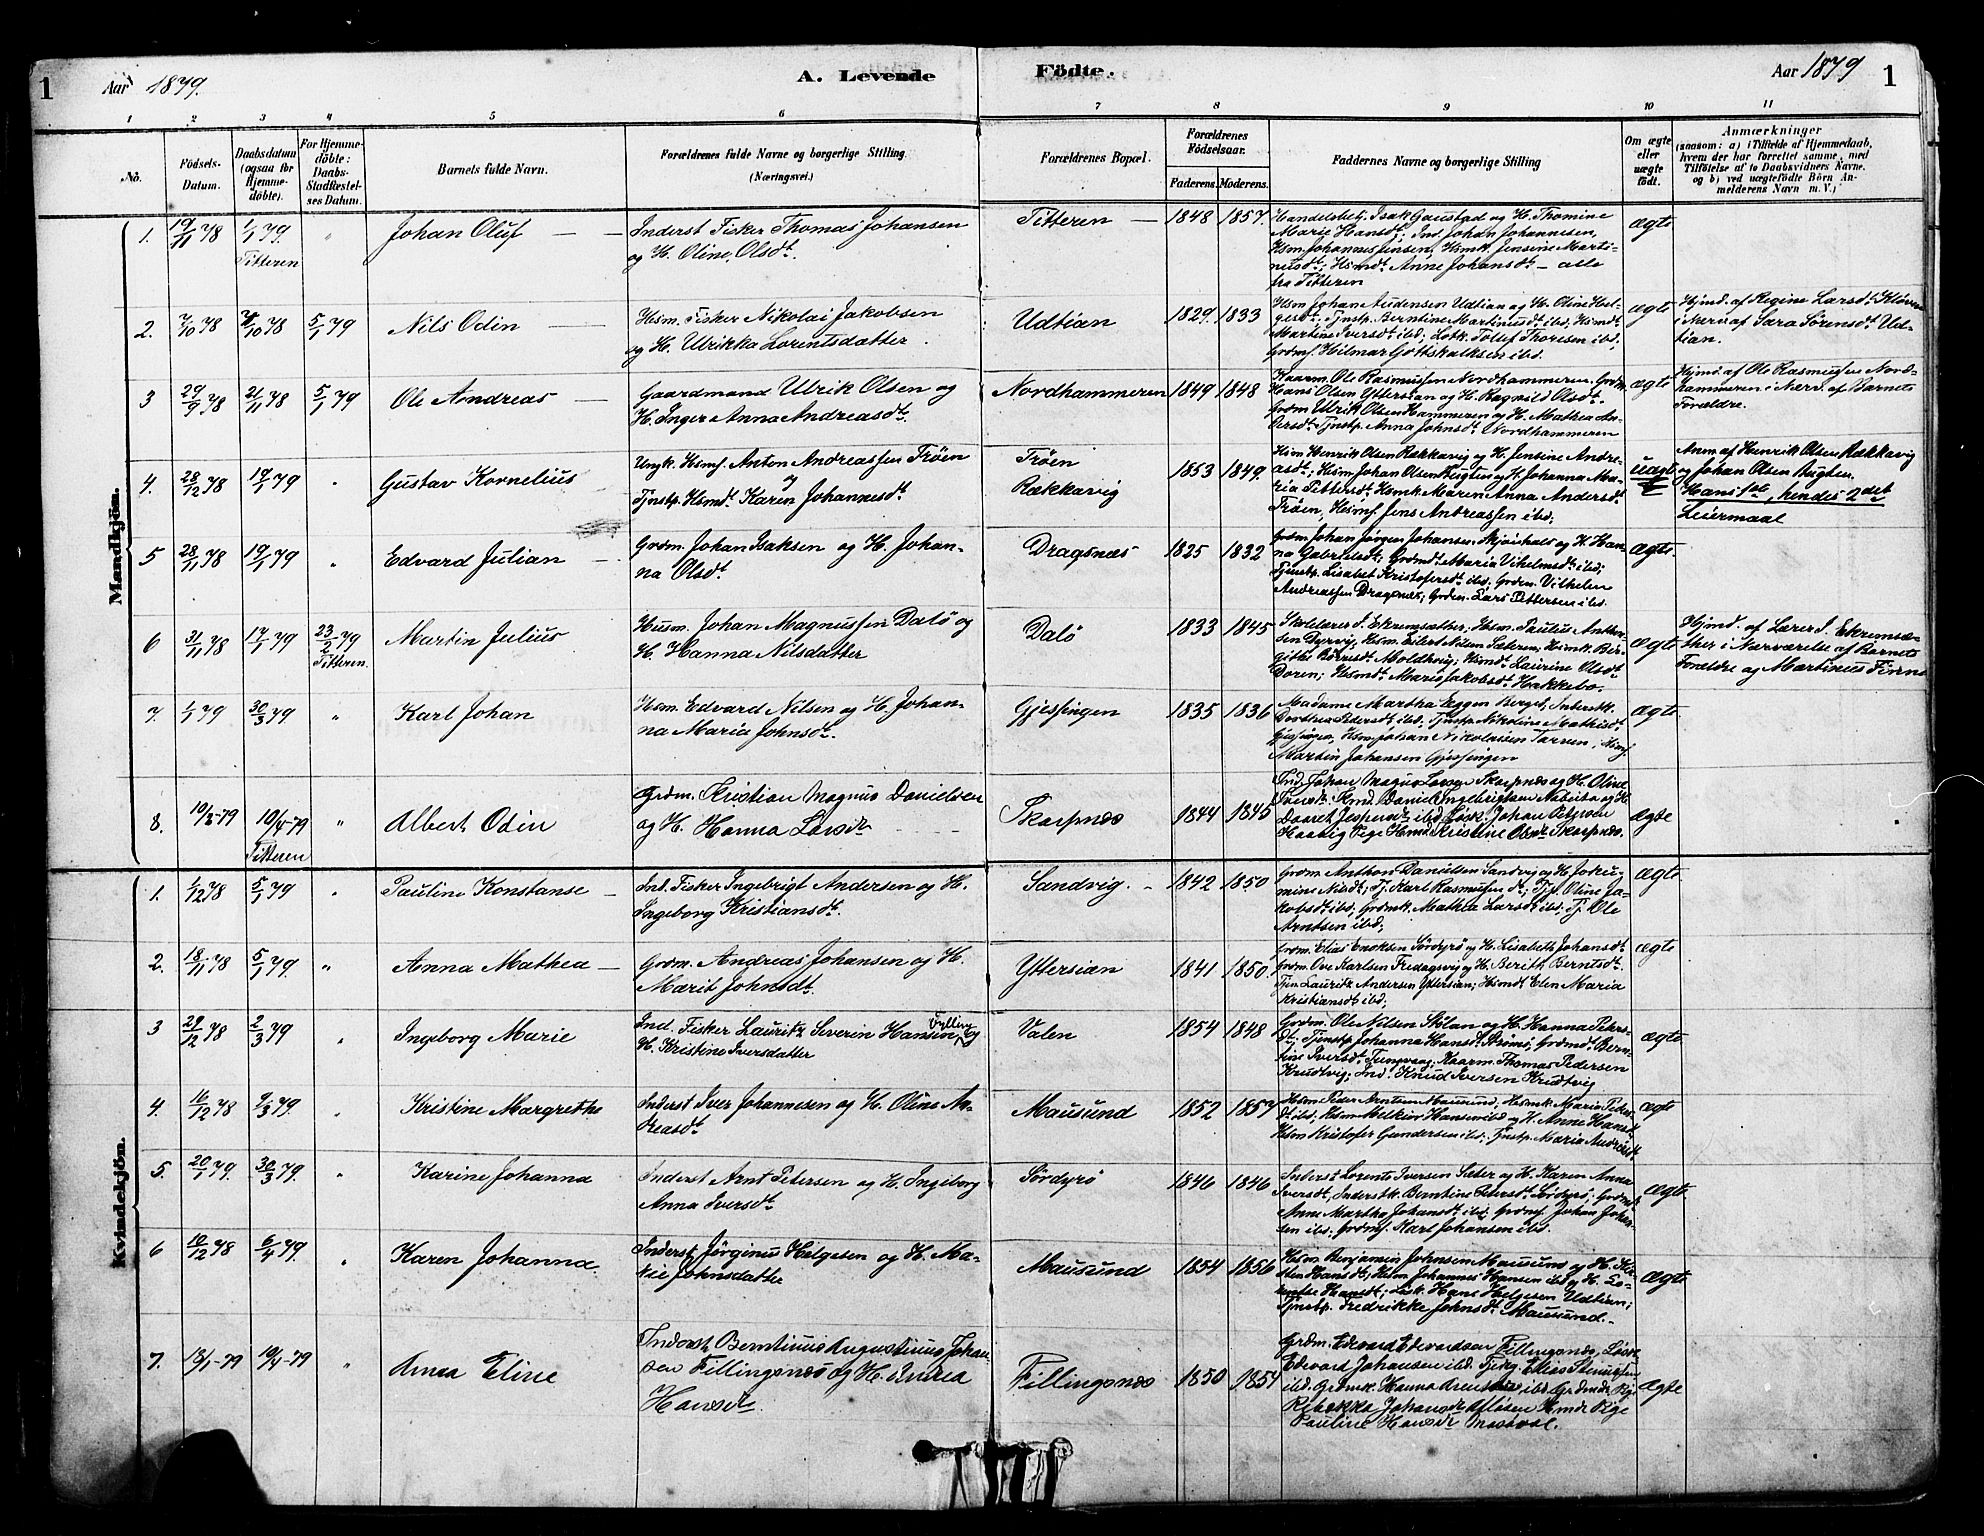 1 Aar 1879. A. Levende Fødte. Aar 1879 1
1 2 3 4 5 6 7 8 9 10 11
No. Fødsels-Datum. Daabsdatum (ogsaa for Hjemmedøbte). For Hjemmedøbte: Daabs-Stadfæstelses Datum. Barnets fulde Navn. Forældrenes fulde Navne og borgerlige Stilling. (Næringsvei.) Forældrenes Bopæl. Forældrenes Fødselsaar. Faderens. Moderens. Faddernes Navne og borgerlige Stilling Om ægte eller uægte født. Anmærkninger (saasom: a) i Tilfælde af Hjemmedaab, hvem der har forrettet samme, med Tilføielse af to Daabsvidners Navne, og b) ved uægtefødte Børn Anmelderens Navn m. V.)
Mandkjøn.
1. 19/11 78 1/1 79. Titteren " Johan Oluf —
Inderst Fisker Thomas Johansen
og H. Oline Olsdt.
Titteren — 1848 1857.
Handelsbetj. Isak Gaustad og H. Thomine
Marie Hansdt; Ind. Johan Johannesen,
Hsm. Johannes Jensen, Hsmk. Jensine Marti-
nusdt; Hsmdt. Anne Johansdt — alle
fra Titteren
ægte
2. 7/10 78 7/10 78 5/1 79 Nils Odin —
Hsm. Fisker Nikolai Jakobsen
og H. Ulrikka Lorentsdatter.
Udtian 1829. 1833
Hsm Johan Audensen Udtian og H. Oline Hel-
gesdt; Tjnstp. Berntine Martinusdt ibd, Hsmdt
Martine Iversdt ibd; Losk. Tollef Thoresen ibd;
Grdmf. Hilmar Gottskalksen ibd.
ægte
Hjmd. af Regine Larsdt Kløven
i Nærv. af Sara Sørensdt Ud-
tian.
3 29/9 78 21/11 78 5/1 79 Ole Andreas —
Gaardmand Ulrik Olsen og
H. Inger Anna Andreasdt.
Nordhammeren 1849 1848
Kaarm. Ole Rasmussen Nordhammeren. Grdm.
Hans Olsen Yttersian og H. Ragnild Olsdt.
Grdm Ulrik Olsen Hammeren og H. Mathea An-
dersdt. Tjnstp. Anna Johnsdt Nordhammeren
ægte
Hjmd. af Ole Rasmussen Nord-
hammeren i Nærv. af Barnets
Forældre.
4. 28/12 78 19/1 79 " Gustav Kornelius —
Ungk. Hsmf. Anton Andreassen Trøen
og
Tjnstp. Hsmdt. Karen Johannesdt
Trøen
Rækkavig
1853 1849.
Hsm Henrik Olsen Rækkavig og H. Jensine Andre-
asdt; Hsm. Johan Olsen Bugten og H. Johanna Ma-
ria Pettersdt. Hsmk. Maren Anna Andersdt
Trøen, Hsmf. Jens Andreassen ibd;
uægte
Anm. af Henrik Olsen Rækkavig
og Johan Olsen Bugten.
Hans 1ste, hendes 2det
Leiermaal
5 28/11 78 19/1 79 " Edvard Julian —
Grdm. Johan Isaksen og H. Johan-
na Olsdt.
Dragsnæs 1825 1832
Grdm Johan Jørgen Johansen Skjaishals og H. Han-
na Gabrielsdt; Grdmdt. Maria Vilhelmsdt ibd;
Tjnstp. Lisabet Kristofersdt ibd; Grdm. Vilhelm
Andreassen Dragsnæs; Grdm. Lars Pettersen ibd.
ægte
6 31/11 78 17/1 79 23/2 79 Titteren Martin Julius
Husm. Johan Magnussen Dalø og
H. Hanna Nilsdatter
Dalø 1833 1845
Skolelærer I. Ekremsæther, Hsm. Paulus Anthon-
sen Dyrvig, Hsm. Eilert Nilsen Sæteren, Hsmk. Ber-
githe Børresdt. Moldtvig; Hsmdt Laurine Olsdt
Doren; Hsmdt. Marie Jakobsdt Hakkebo.
ægte
Hjmd. af Lærer I. Ekremsæ-
ther i Nærværelse af Barnets
Forældre og Martinus Finne
7. 1/1 79 30/3 79 " Karl Johan
Hsm. Edvard Nilsen og H. Johan-
na Maria Johnsdt.
Gjessingen 1835 1836
Madame Martha Eggen Berget, Inderstk.
Dorthea Pedersdt ibd, Tjnstp Nikoline Mathisdt
Gjessingen, Hsm. Johan Nikolaisen Tarven, Hsmf
Martin Johansen Gjessingen
ægte
8. 10/3-79 10/4-79 Titteren " Albert Odin
Grdm. Kristian Magnus Danielsen
og H. Hanna Larsdt.
Skarpnæs 1844 1845
Ind. Johan Magnus Larsen Skarpnæs og H. Oline
Hsmd. Daniel Ingebrigtsen Nabeita og H.
Dorret Jespersdt ibd Losk. Johan Petersen
Haavig Pige Hsmd. Kristine Olsdt Skarpnæs.
ægte
Kvindekjøn.
1. 1/12 78 5/1 79 " Pauline Konstanse —
Ind. Fisker Ingebrigt Andersen og H.
Ingeborg Kristiansdt.
Sandvig. - 1842 1850
Grdm. Anthon Danielsen Sandvig og H. Joku-
mine Nilsdt; Tj. Karl Rasmussen dt; Tjp. Oline Ja-
kobsdt ibd; Grdmk. Mathea Larsdt ibd; Tj. Ole
Arntsen ibd;
ægte
2. 18/11 78 5/1 79 " Anna Mathea —
Grdm. Andreas Johansen og H.
Marit Johnsdt.
Yttersian 1841 1850.
Grdm. Elias Enoksen Sørdyrø og H. Lisabeth Johansdt.
Grdm. Ove Karlsen Fredagsvig og H. Berith Berntsdt.
Tjen Lauritz Andersen Yttersian; Hsmdt Elen Maria
Kristiansdt ibd;
ægte
3 29/12 78 2/3 79 " Ingeborg Marie
Ind. Fisker Lauritz Severin Hansen Fylling og
H. Kristine Iversdatter
Valen 1854 1848
Grdm. Ole Nilsen Stølan og H. Hanna Peters-
dt; Tjenstp Johanna Hansdt Strømø; Grdmdt Bern-
tine Iversdt. Tungvaag; Kaarm. Thomas Pedersen
Krudtvig; Ind. Knud Iversen Krudtvig
ægte
4. 16/12 78 9/3 79. " Kristine Margrethe
Inderst Iver Johannesen og H. Oline An-
dreasdt
Mausund 1852 1857
Hsm Peder Arntsen Mausund; Hsmk. Maria Peder-
dt ibd, Hsm Melkior Hansen ibd og H. Anne Hansdt
Hsm Kristofer Gundersen ibd; Tjnstp. Maria Andreasdt
ægte
5. 20/1 79. 30/3 79. " Karine Johanna
Inderst Arnt Petersen og H. Ingeborg
Anna Iversdt
Sørdyrø 1846 1846
Inderst Lorents Iversen Sæter og H. Karen Anna
Iversdt, Inderstk. Berntine Petersdt Sørdyrø; Grdmk.
Anne Martha Johansdt ibd; Grdmf. Johan Johan-
sen ibd; Grdmf. Karl Johansen ibd.
ægte
6 10/12 78 6/4 79. " Karen Johanna.
Inderst Jørginus Helgesen og H. Ma-
rie Johnsdatter
Mausund 1854 1856
Hsm. Benjamin Johnsen Mausund og H. Kir-
sten Hansdt; Hsm Johannes Hansen ibd og H. Lo-
Hansdt; Losk. Hans Helgesen Udtian;
Tjnstp. Fredrikke Johnsdt Mausund.
ægte
7. 13/1-79 10/4-79 " Anna Eline
Inderst Berntinus Augustinus Johan
sen Fillingsnæs og H. Andrea
Hansdt.
Fillingsnæs 1850 1854
Grdm. Edevard Edevardsen Fillingsnæs, Losk
Edevard Johansen ibd. Elias
ibd. Grdmk. Hanna ibd Grdmdt Pige
Rebekka Johansdt Hsmdt Pige
Pauline Hansdt Mastval.
ægte